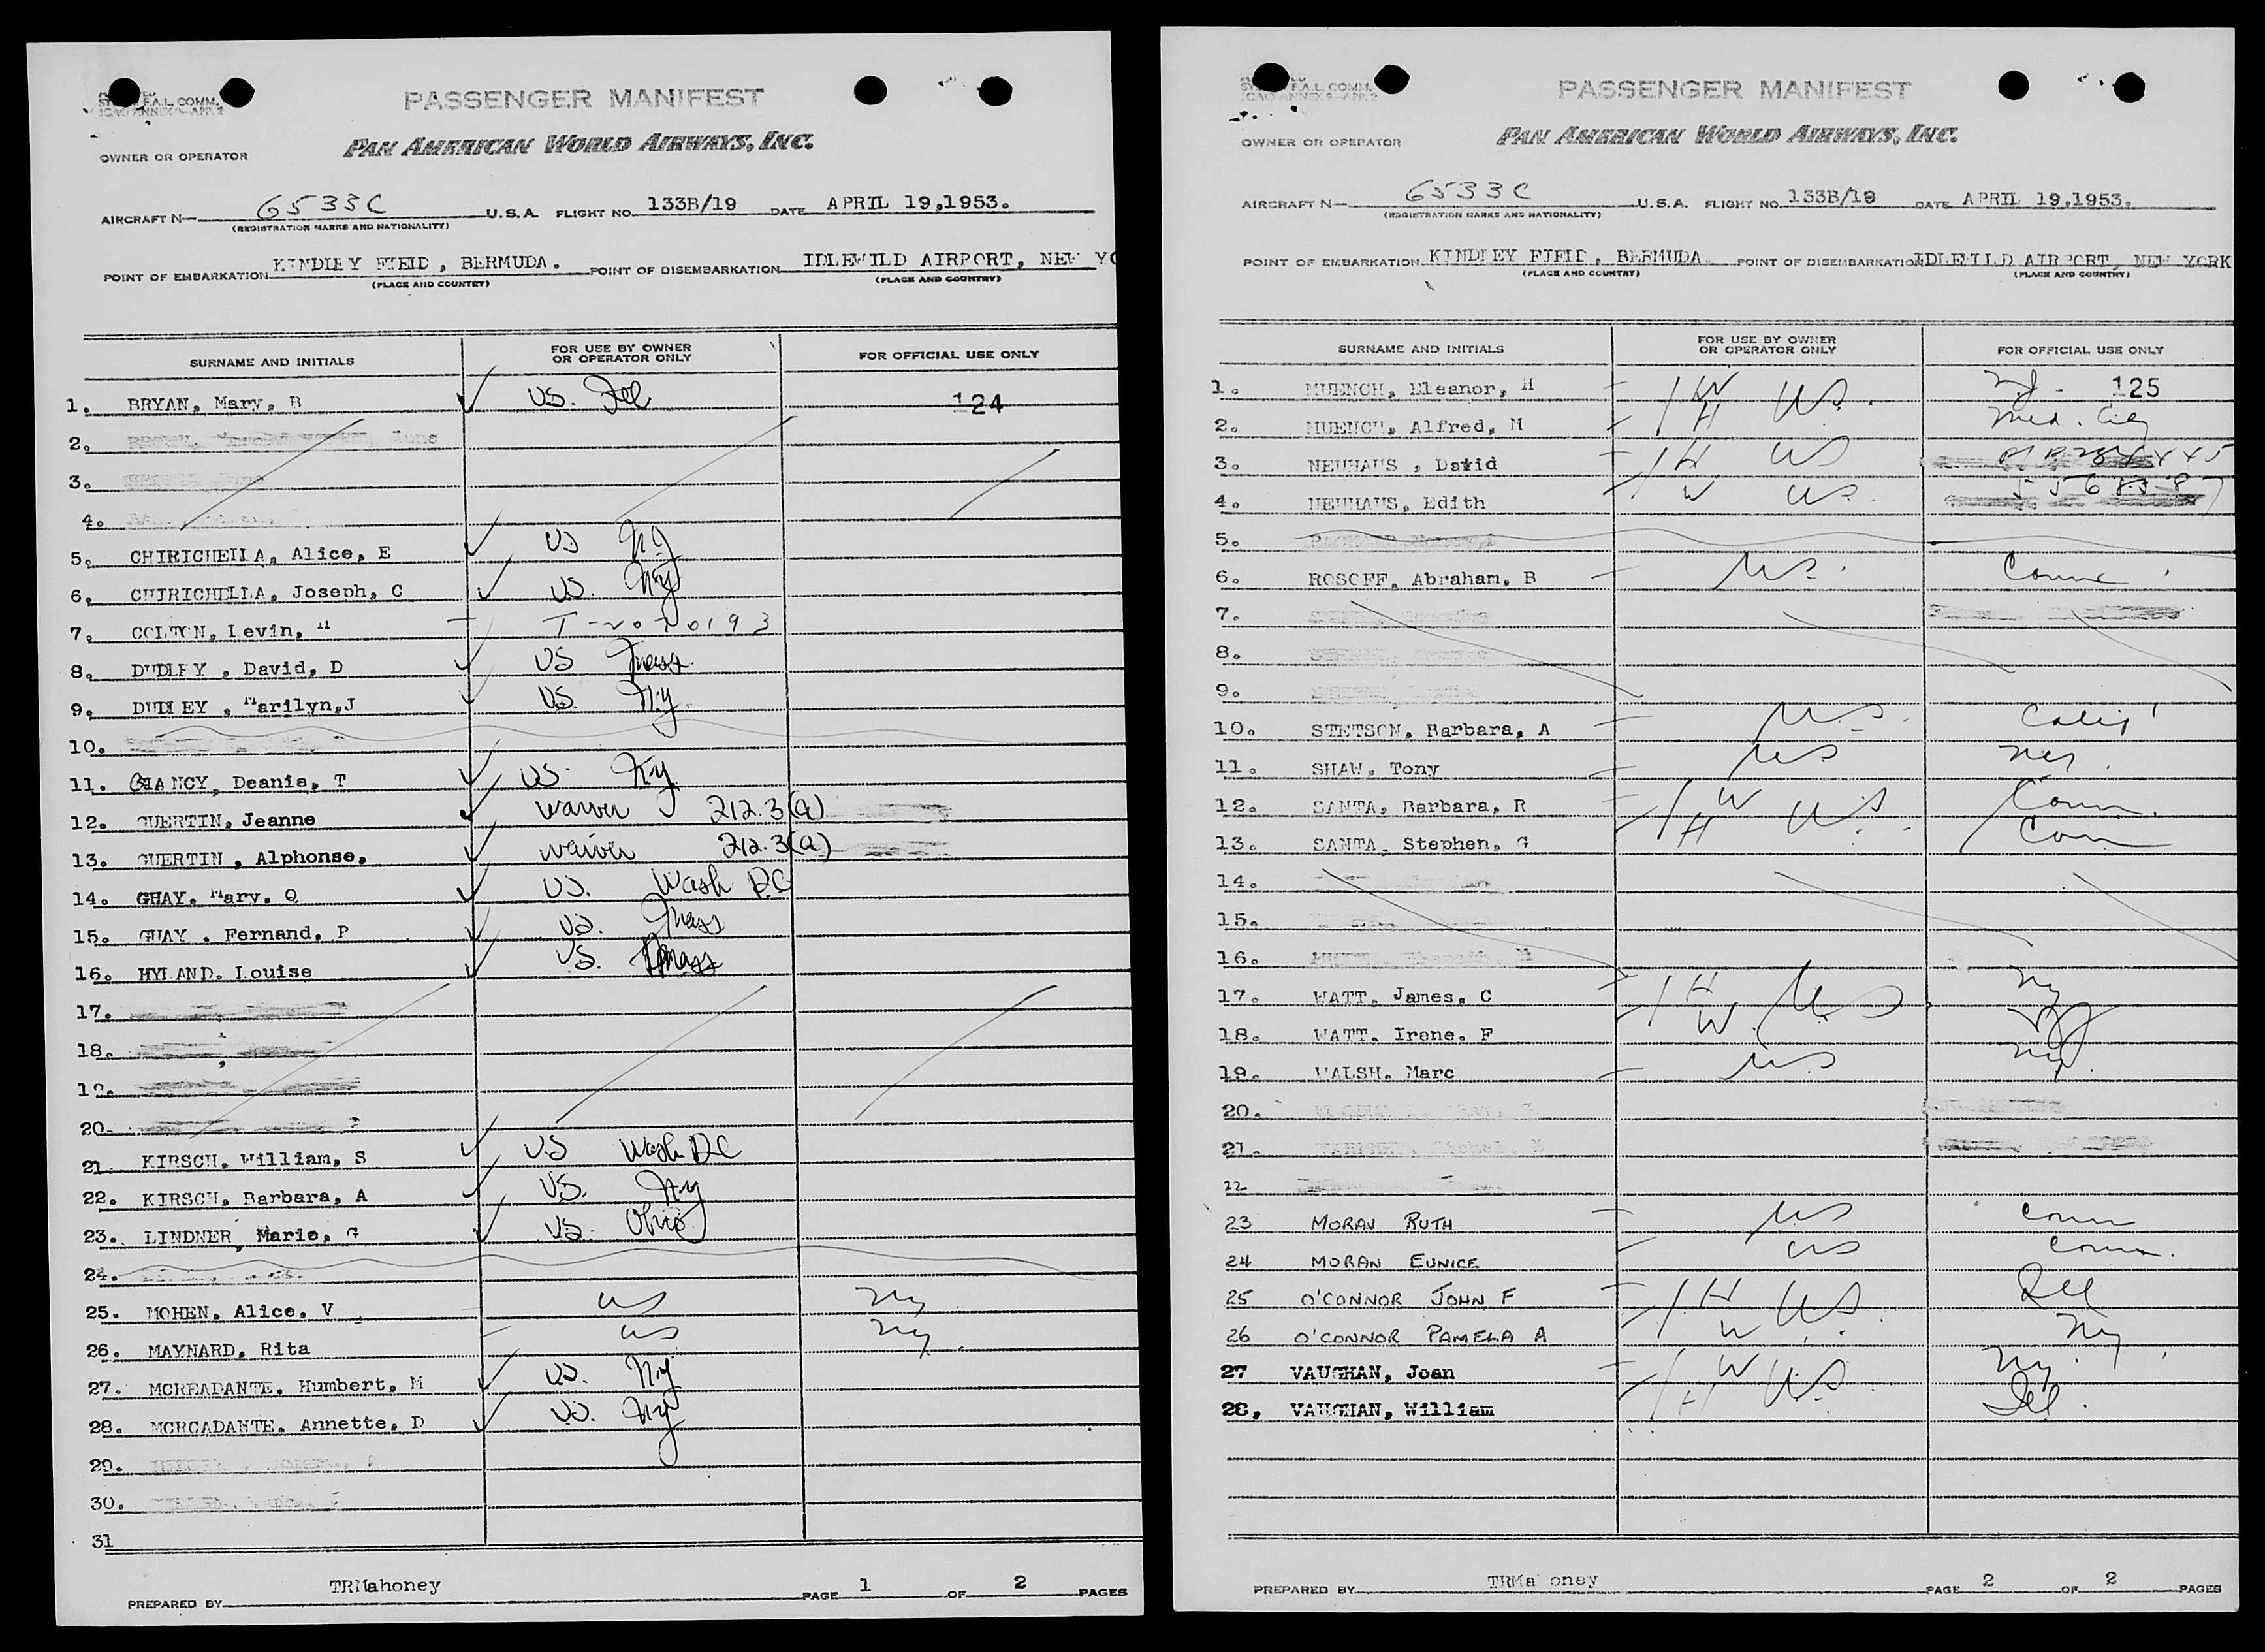 F.A.L. COMM.
PASSENGER MANIFEST
PAN AMERICAN WORLD AIRWAYS, INC.
OWNER OR OPERATOR
AIRCRAFT N— 6533C U.S.A. FLIGHT NO. 133B/19 DATE APRIL 19,1953.
(REGISTRATION MARKS AND NATIONALITY)
POINT OF EMBARKATION KINDLEY FIELD, BERMUDA. POINT OF DISEMBARKATION IDLEWILD AIRPORT, NEW YO
(PLACE AND COUNTRY) (PLACE AND COUNTRY)
SURNAME AND INITIALS FOR USE BY OWNER OR OPERATOR ONLY FOR OFFICIAL USE ONLY
1. BRYAN, Mary, B ✓ US. Ill 124
2.
3.
4.
5. CHIRICHELLA, Alice, E ✓ US NJ
6. CHIRICHELLA, Joseph, C ✓ US. Ny
7. COLTON, Levin, H T-2070193
8. DUDLEY, David, D ✓ US Mass.
9. DUDLEY, Marilyn,J ✓ US. N.y.
10.
11. CLANCY, Deanie, T ✓ US. Ky
12. GUERTIN, Jeanne ✓ waiver 212.3(a)
13. GUERTIN, Alphonse, ✓ waiver 212.3(a)
14. GHAY, Mary. Q ✓ US. Wash DC
15. GUAY. Fernand, P ✓ US. Mass
16. HYLAND. Louise ✓ US. Mass
17.
18.
19.
20.
21. KIRSCH, William, S ✓ US Wash DC
22. KIRSCH, Barbara, A ✓ US. Ny
23. LINDNER, Marie, G ✓ US. Ohio
24.
25. MOHEN. Alice. V — US Ny
26. MAYNARD, Rita — US Ny.
27. MCREADANTE. Humbert, M ✓ US. Ny
28. MCRCADANTE. Annette, D ✓ US. Ny
29.
30.
31
PREPARED BY TRMahoney PAGE 1 OF 2 PAGES
F.A.L. COMM.
PASSENGER MANIFEST
PAN AMERICAN WORLD AIRWAYS, INC.
OWNER OR OPERATOR
AIRCRAFT N— 6533C U.S.A. FLIGHT NO. 133B/19 DATE APRIL 19,1953.
(REGISTRATION MARKS AND NATIONALITY)
POINT OF EMBARKATION KINDLEY FIELD, BERMUDA. POINT OF DISEMBARKATION IDLEWILD AIRPORT, NEW YORK
(PLACE AND COUNTRY) (PLACE AND COUNTRY)
SURNAME AND INITIALS FOR USE BY OWNER OR OPERATOR ONLY FOR OFFICIAL USE ONLY
1. MUENCH, Eleanor, H W U.S. NJ. 125
2. MUENCH, Alfred, M H
3. NEUHAUS, David H US
4. NEUHAUS, Edith W US.
5.
6. ROSOFF, Abraham, B U.S. Conn.
7.
8.
9.
10. STETSON, Barbara, A U.S. Calif
11. SHAW, Tony US Ny.
12. SANTA, Barbara, R W US Conn.
13. SANTA, Stephen, G H Conn
14.
15.
16.
17. WATT. James. C H US Ny
18. WATT. Irene. F W
19. WALSH. Marc U.S Ny.
20.
21.
22
23 MORAN RUTH US Conn
24 MORAN EUNICE US Conn.
25 O'CONNOR JOHN F H U.S. Ill
26 O'CONNOR PAMELA A W Ny
27 VAUGHAN, Joan W U.S. Ny.
28, VAUGHAN, William H Ill.
PREPARED BY TRMa oney PAGE 2 OF 2 PAGES